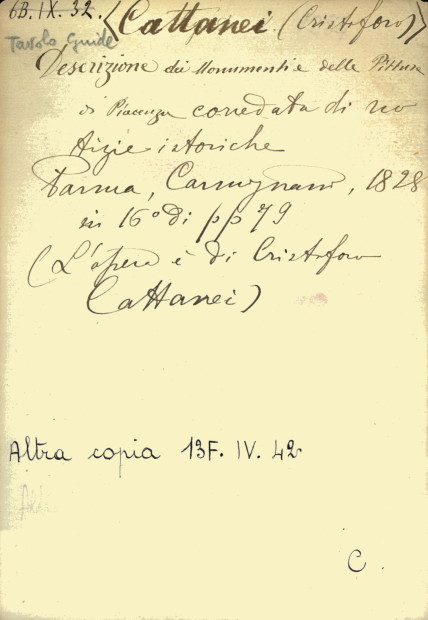 6B. IX. 32. <Cattanei (Cristoforo)>
Tavolo Guide
Descrizione dei Monumenti e delle Pitture
di Piacenza corredata di no
tizie istoriche
Parma, Carmignani, 1828
in 16° di pp 79
(L'opera è di Cristoforo
Cattanei)
Altra copia 13F. IV. 42
Alt
C.